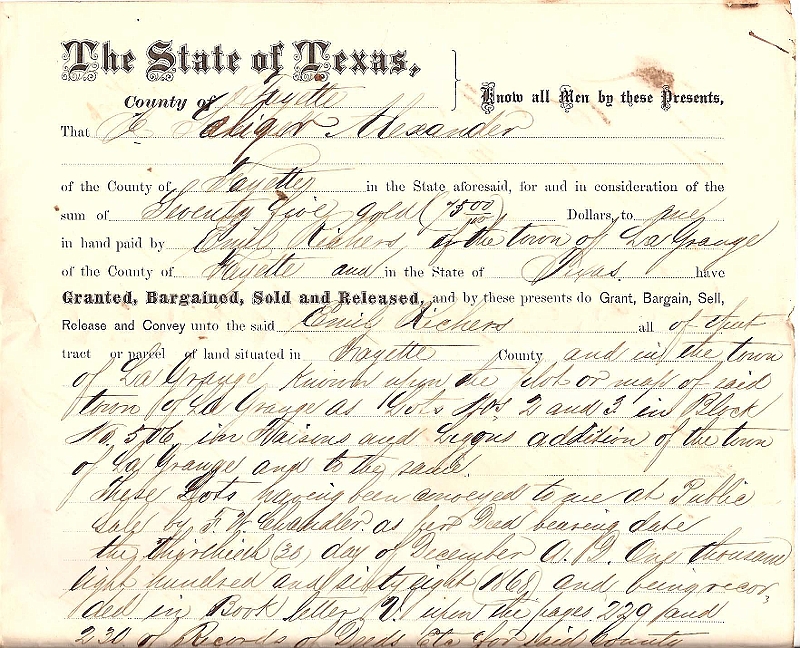 The State of Texas,
County of Fayette
Know all Men by these Presents,
That Alexander
of the County of Fayette in the State aforesaid, for and in consideration of the
sum of Seventy five gold (75 00/100) Dollars, to me
in hand paid by Emil Richers of the town of La Grange
of the County of Fayette and in the State of Texas. have
Granted, Bargained, Sold and Released, and by these presents do Grant, Bargain, Sell,
Release and Convey unto the said Emil Richers all of that
tract or parcel of land situated in Fayette County and in the town
of La Grange, known upon the plot or map of said
town of La Grange as Lots Nos 2 and 3 in Block
No, 506, in and addition of the town
of La Grange and to the same.
These Lots having been conveyed to me at Public
Sale by F. W. Chandler. as per Deed bearing date
the Thirthieth (30) day of December A. D. One thousand
eight hundred and sixty eight (1868) and being recor-
ded in Book letter V. upon the pages 229 and
230 of Records of Deeds Etc for said County